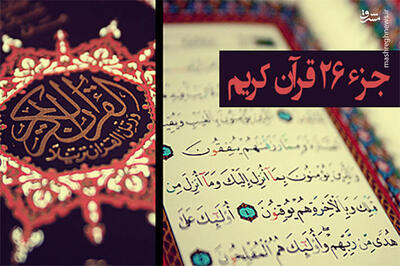 مشرق
mashreghnews.ir
جزء ۲۶ قرآن کریم
القرآن الكريم
ورتل القرآن ترتيلا
ومما رزقنهم ينفقون
والذين يؤمنون بما أنزل إليك وما أنزل من
قبلك وبالآخرة هم يوقنون أولئك على
هدى من ربهم وأولئك هم المفلحون